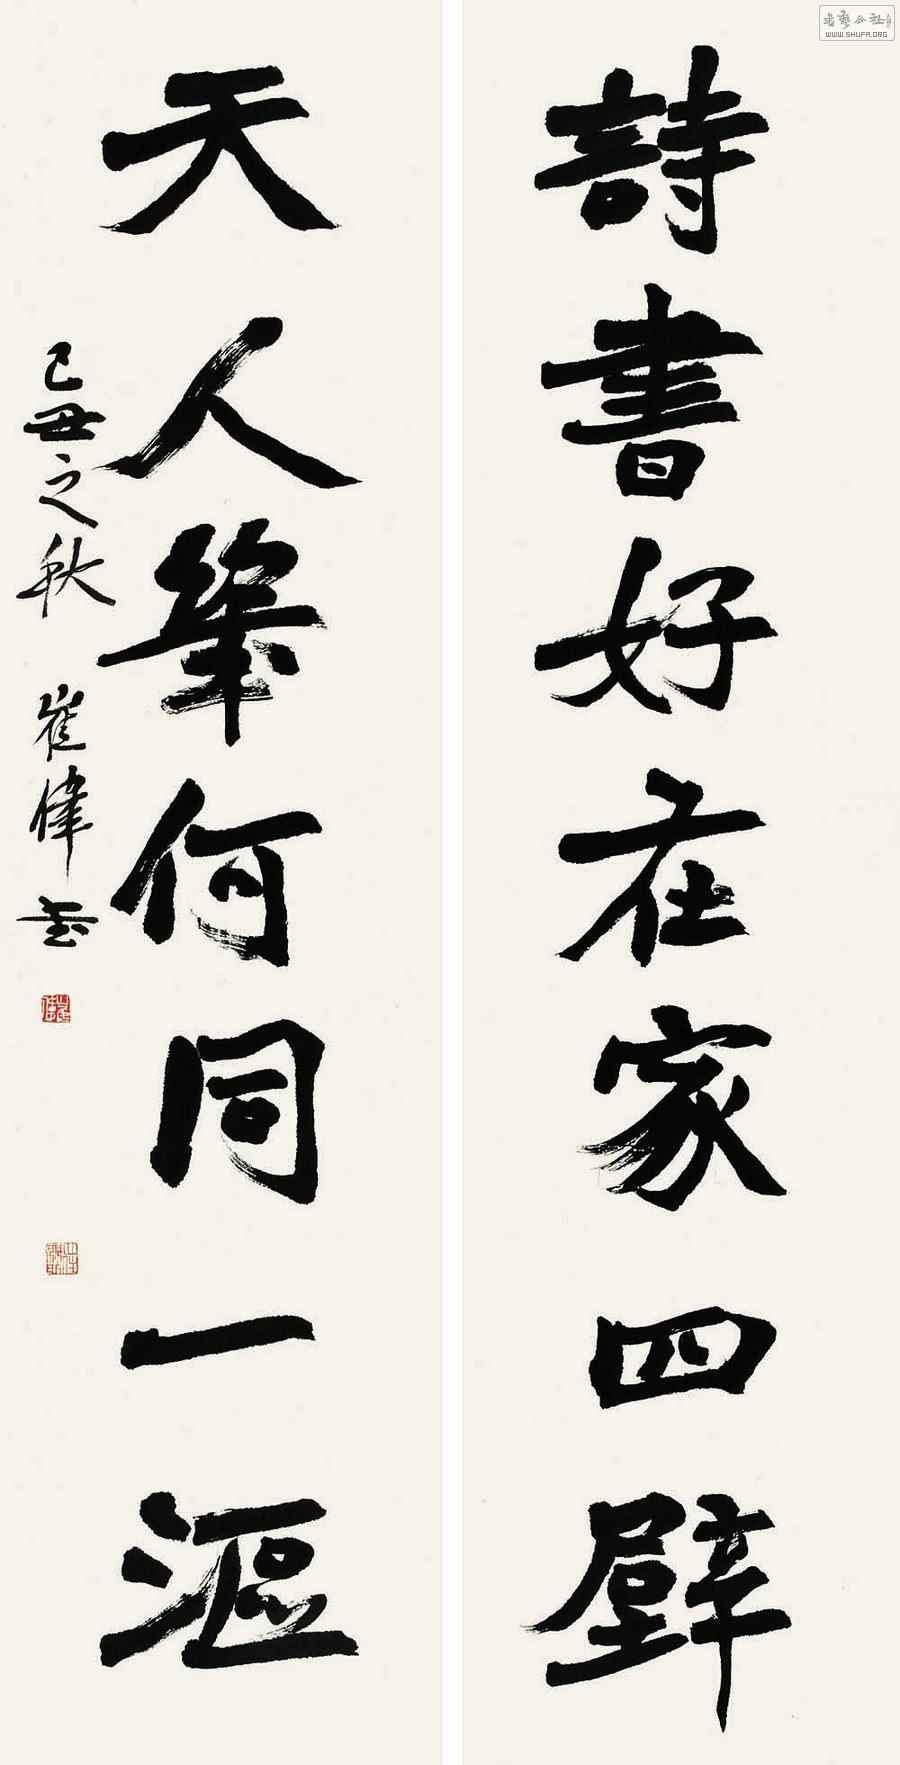 詩書好在家四壁
天人幾何同一漚
己丑之秋 崔偉書
書藝公社
WWW.SHUFA.ORG